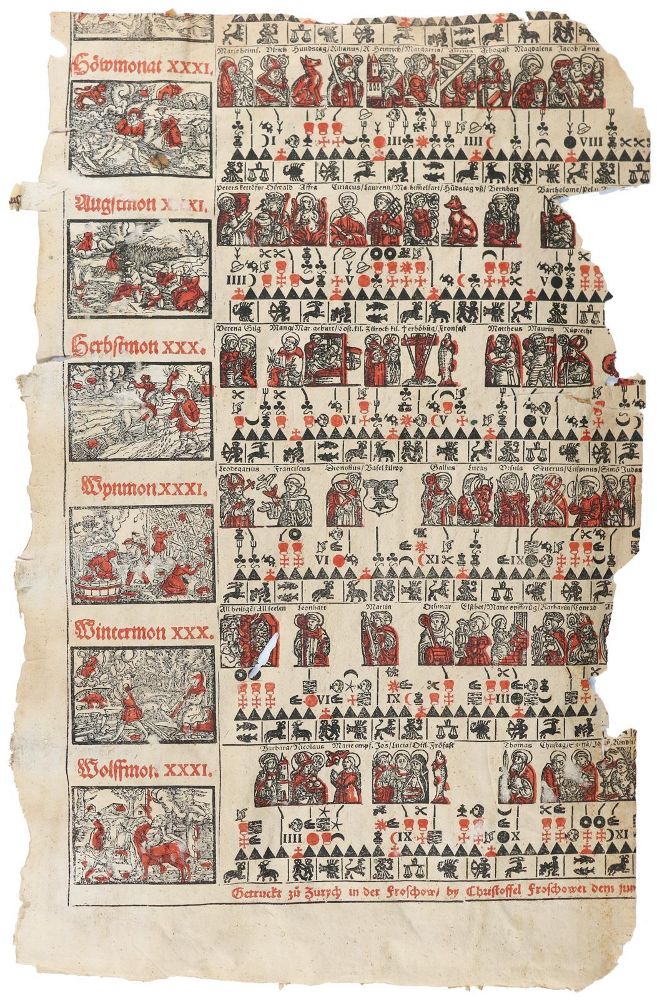 Höwmonat XXXI.
Marie heims. Ulrich Hundstag/Kilianus/K. Heinrich/Margarita/ Arbogast Magdalena Jacob/Anna
I III IIII VIII
Augstmon XXXI.
Peters kettēfyr Oßwald Affra Ciriacus/Laurentz/Ma. himelfart/Hūdstag vß/Bernhart Bartholome/
IIII V
Herbstmon XXX.
Verena Gilg Mang/Mar. geburt/Cost. kil. Zürich kil. † erhöhūg/Fronfast Mattheus Mauritz Ruprecht
VI V V
Wynmon XXXI.
Leodegarius Franciscus Dionysius/Basel kilwy Gallus Lucas Ursula Severus/Crispinus/Simō Judas
VI XI IX
Wintermon XXX.
All heilige/All seelen Leonhart Martin Othmar Elsbet/Marie opfferūg/Katharin/Conrad
VI IX III
Wolffmon XXXI.
Barbara/Nicolaus Marie empf. Jos/Lucia/Ott. Frōfast Thomas Christag/
IIII IX X XI
Getruckt zů Zürych in der Froschow/ by Christoffel Froschower dem jun